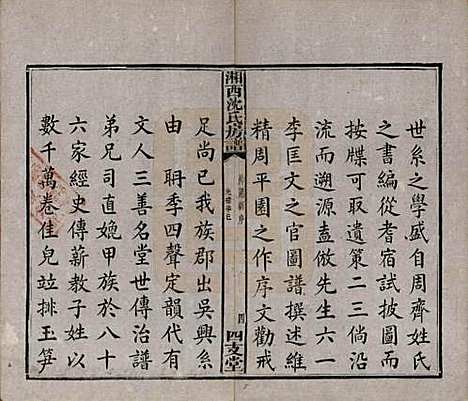 世系之學盛自周齊姓氏
之書編從耆宿試披圖而
按牒可取遺策二三倘沿
流而遡源盍倣先生六一
李匡文之官圖撰述維
精周平園之作序文勸戒
湘西沈氏房譜
四
四支堂
足尚已我族郡出吳興系
由聃季四聲定韻代有
文人三善名堂世傳治譜
弟兄司直媲甲族於八十
六家經史傳薪教子孫之
數千萬卷佳兒竝排玉笋